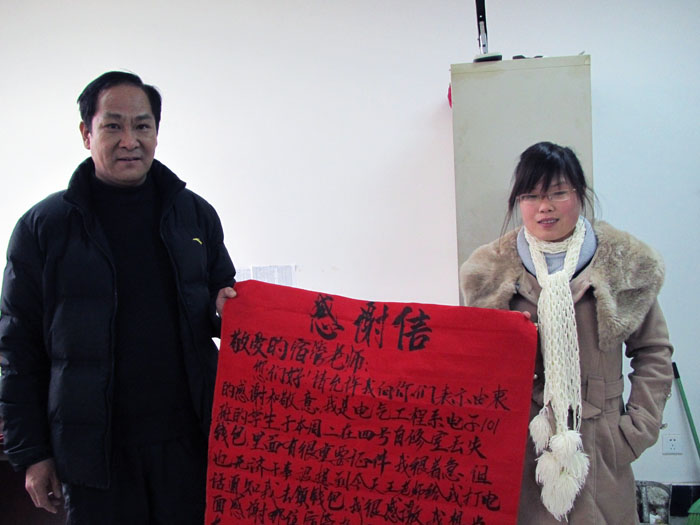 感谢信
敬爱的宿管老师:
您们好!请允许我向你们表示由衷
的感谢和敬意,我是电气工程系电子101
班的学生于本周二在四号自修室丢失
钱包里面有很重要证件,我很着急,但
也无济于事,没想到今天王老师给我打电
话通知我去领钱包,我很感激,我想当
面感谢